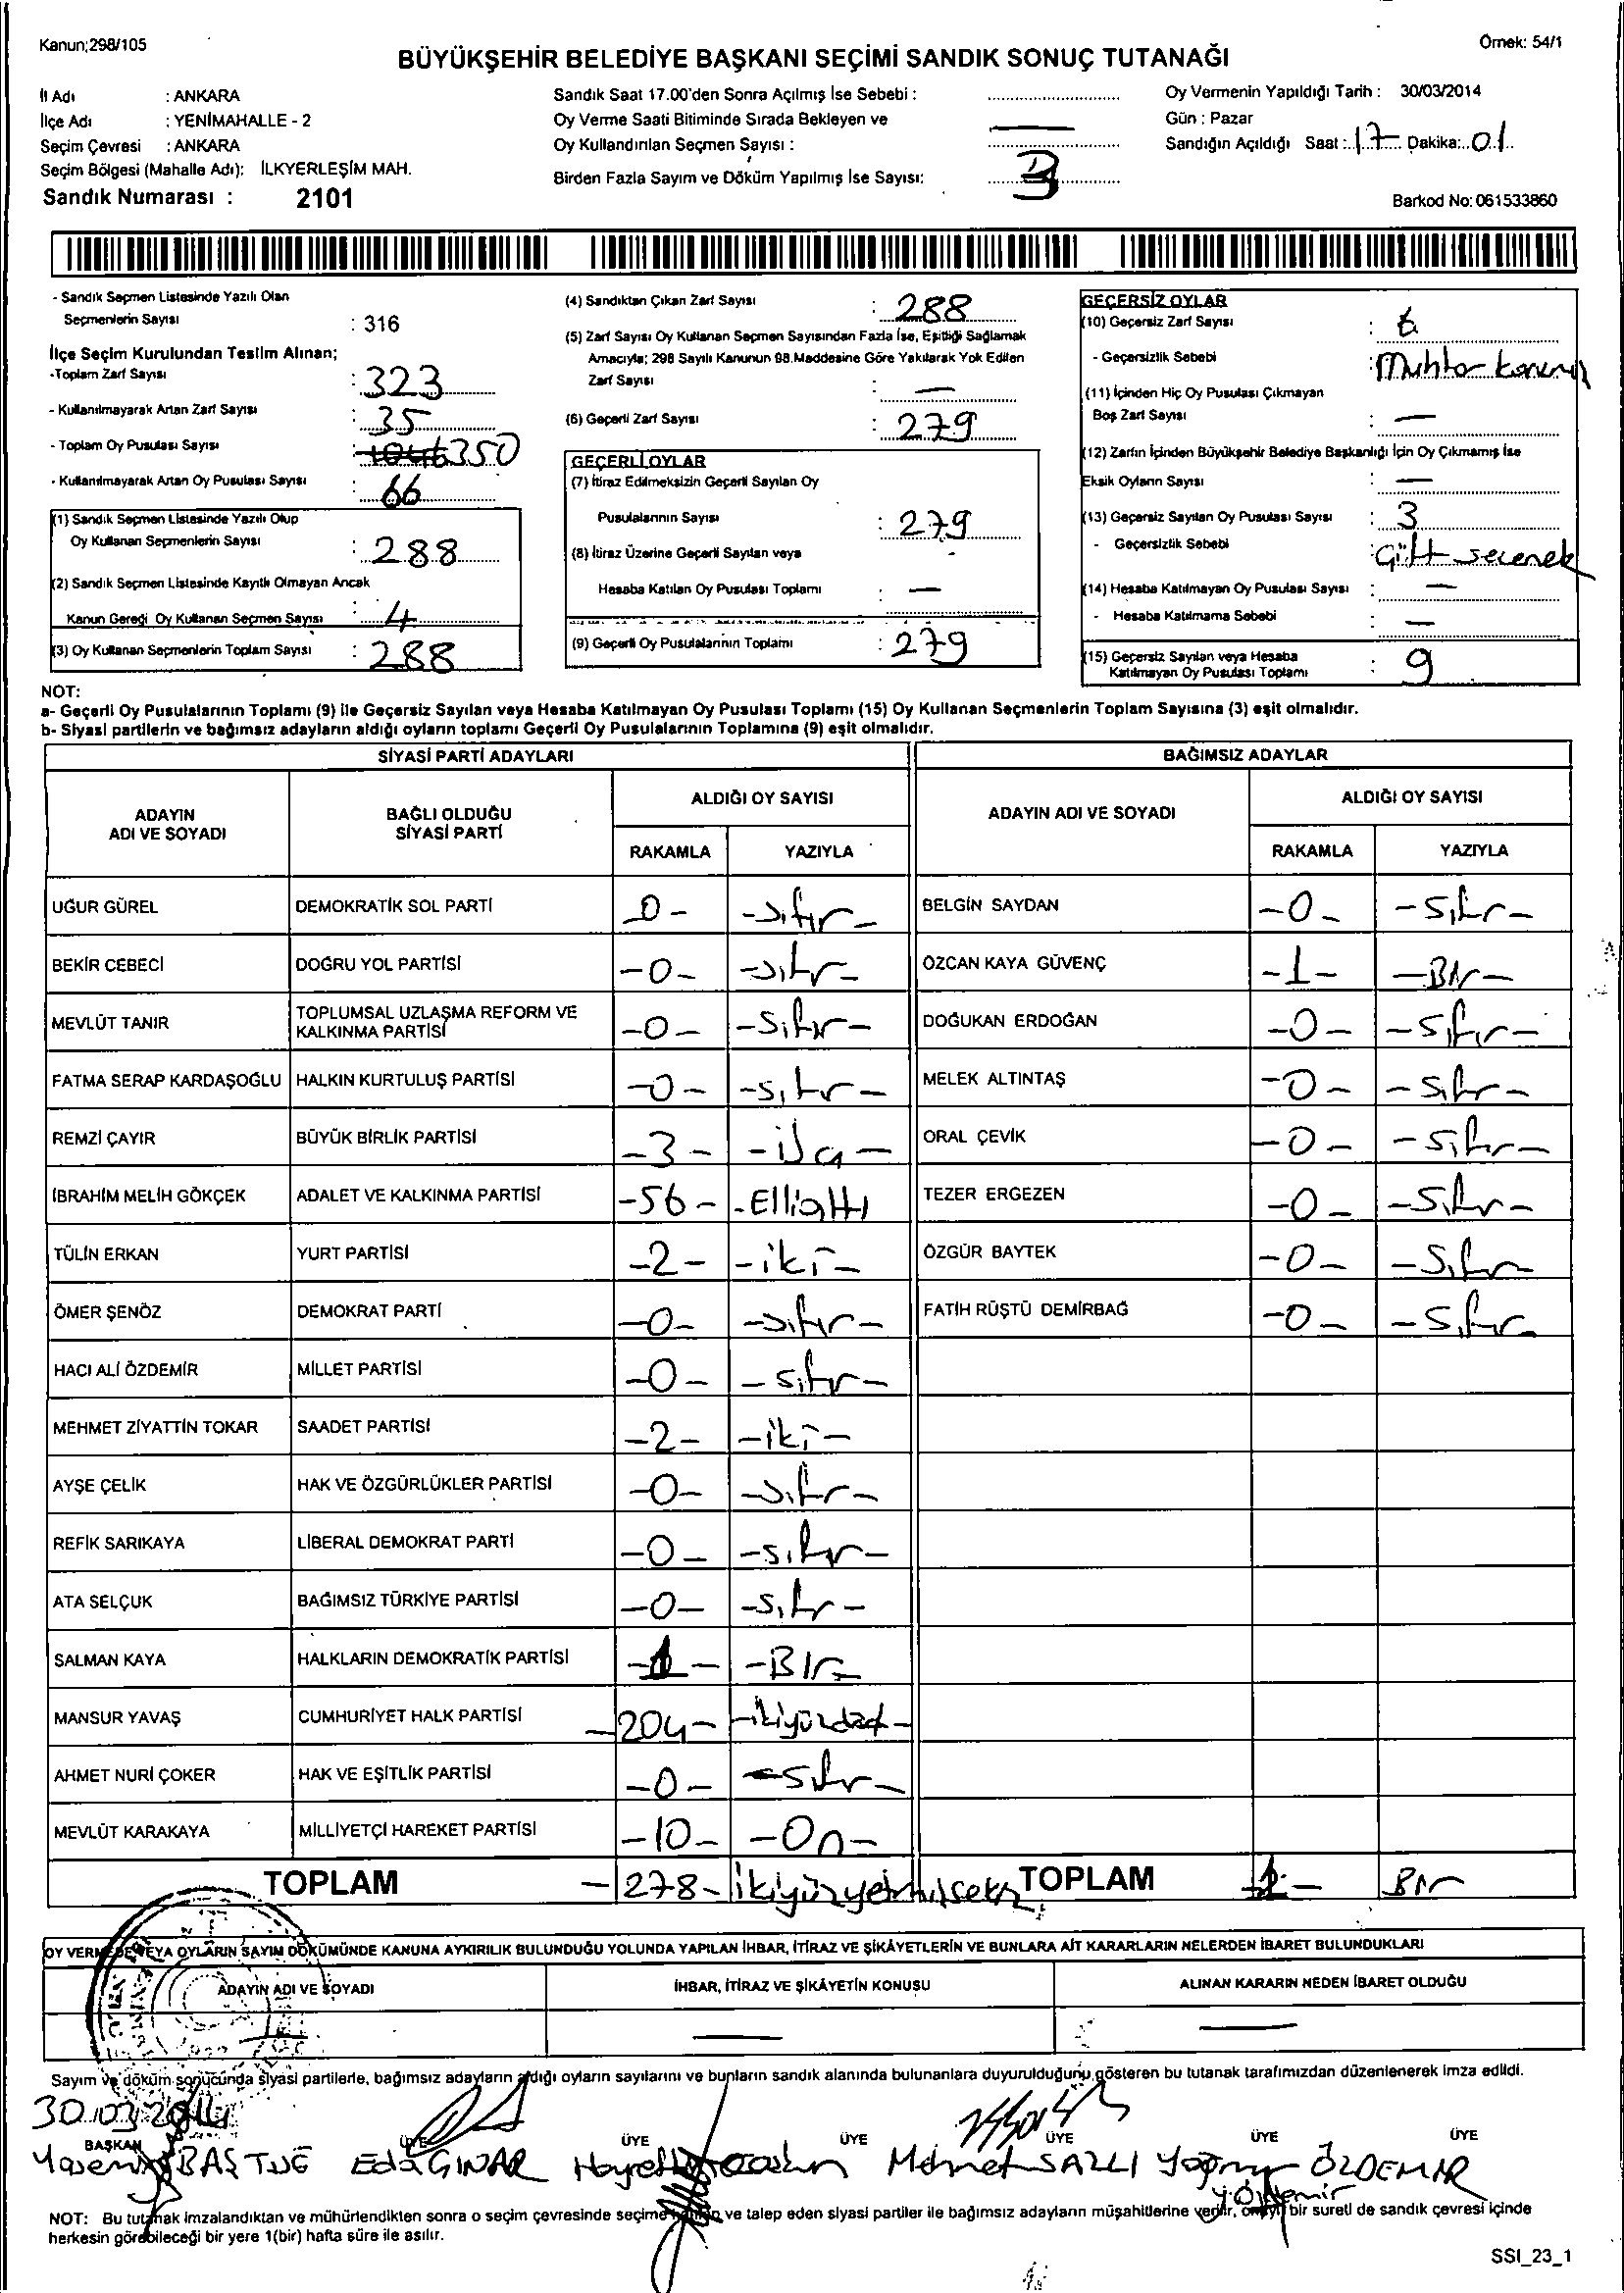 Kanun;298/105
Örnek: 54/1
BÜYÜKŞEHİR BELEDİYE BAŞKANI SEÇİMİ SANDIK SONUÇ TUTANAĞI
İl Adı : ANKARA
İlçe Adı : YENİMAHALLE - 2
Seçim Çevresi : ANKARA
Seçim Bölgesi (Mahalle Adı): İLKYERLEŞİM MAH.
Sandık Numarası : 2101
Sandık Saat 17.00'den Sonra Açılmış İse Sebebi :
Oy Verme Saati Bitiminde Sırada Bekleyen ve
Oy Kullandırılan Seçmen Sayısı : —
Birden Fazla Sayım ve Döküm Yapılmış İse Sayısı: 3
Oy Vermenin Yapıldığı Tarih : 30/03/2014
Gün : Pazar
Sandığın Açıldığı Saat : 17 Dakika: 01
Barkod No: 061533860
- Sandık Seçmen Listesinde Yazılı Olan
Seçmenlerin Sayısı : 316
İlçe Seçim Kurulundan Teslim Alınan;
-Toplam Zarf Sayısı : 323
- Kullanılmayarak Artan Zarf Sayısı : 35
- Toplam Oy Pusulası Sayısı : 350
- Kullanılmayarak Artan Oy Pusulası Sayısı : 66
(1) Sandık Seçmen Listesinde Yazılı Olup
Oy Kullanan Seçmenlerin Sayısı : 288
(2) Sandık Seçmen Listesinde Kayıtlı Olmayan Ancak
Kanun Gereği Oy Kullanan Seçmen Sayısı : 4
(3) Oy Kullanan Seçmenlerin Toplam Sayısı : 288
(4) Sandıktan Çıkan Zarf Sayısı : 288
(5) Zarf Sayısı Oy Kullanan Seçmen Sayısından Fazla İse, Eşitliği Sağlamak
Amacıyla; 298 Sayılı Kanunun 98.Maddesine Göre Yakılarak Yok Edilen
Zarf Sayısı : —
(6) Geçerli Zarf Sayısı : 279
GEÇERLİ OYLAR
(7) İtiraz Edilmeksizin Geçerli Sayılan Oy
Pusulalarının Sayısı : 279
(8) İtiraz Üzerine Geçerli Sayılan veya
Hesaba Katılan Oy Pusulası Toplamı : —
(9) Geçerli Oy Pusulalarının Toplamı : 279
GEÇERSİZ OYLAR
(10) Geçersiz Zarf Sayısı : 6
- Geçersizlik Sebebi : Muhtar
(11) İçinden Hiç Oy Pusulası Çıkmayan
Boş Zarf Sayısı : —
(12) Zarfın İçinden Büyükşehir Belediye Başkanlığı İçin Oy Çıkmamış İse
Eksik Oyların Sayısı : —
(13) Geçersiz Sayılan Oy Pusulası Sayısı : 3
- Geçersizlik Sebebi : Çift seçenek
(14) Hesaba Katılmayan Oy Pusulası Sayısı : —
- Hesaba Katılmama Sebebi : —
(15) Geçersiz Sayılan veya Hesaba
Katılmayan Oy Pusulası Toplamı : 9
NOT:
a- Geçerli Oy Pusulalarının Toplamı (9) ile Geçersiz Sayılan veya Hesaba Katılmayan Oy Pusulası Toplamı (15) Oy Kullanan Seçmenlerin Toplam Sayısına (3) eşit olmalıdır.
b- Siyasi partilerin ve bağımsız adayların aldığı oyların toplamı Geçerli Oy Pusulalarının Toplamına (9) eşit olmalıdır.
SİYASİ PARTİ ADAYLARI
BAĞIMSIZ ADAYLAR
ADAYIN ADI VE SOYADI
BAĞLI OLDUĞU SİYASİ PARTİ
ALDIĞI OY SAYISI
RAKAMLA YAZIYLA
ADAYIN ADI VE SOYADI
ALDIĞI OY SAYISI
RAKAMLA YAZIYLA
UĞUR GÜREL DEMOKRATİK SOL PARTİ -0- -sıfır- BELGİN SAYDAN -0- -sıfır-
BEKİR CEBECİ DOĞRU YOL PARTİSİ -0- -sıfır- ÖZCAN KAYA GÜVENÇ -1- -Bir-
MEVLÜT TANIR TOPLUMSAL UZLAŞMA REFORM VE KALKINMA PARTİSİ -0- -sıfır- DOĞUKAN ERDOĞAN -0- -sıfır-
FATMA SERAP KARDAŞOĞLU HALKIN KURTULUŞ PARTİSİ -0- -sıfır- MELEK ALTINTAŞ -0- -sıfır-
REMZİ ÇAYIR BÜYÜK BİRLİK PARTİSİ -3- -üç- ORAL ÇEVİK -0- -sıfır-
İBRAHİM MELİH GÖKÇEK ADALET VE KALKINMA PARTİSİ -56- -Elliatı TEZER ERGEZEN -0- -sıfır-
TÜLİN ERKAN YURT PARTİSİ -2- -iki- ÖZGÜR BAYTEK -0- -sıfır-
ÖMER ŞENÖZ DEMOKRAT PARTİ -0- -sıfır- FATİH RÜŞTÜ DEMİRBAĞ -0- -sıfır-
HACI ALİ ÖZDEMİR MİLLET PARTİSİ -0- -sıfır-
MEHMET ZİYATTİN TOKAR SAADET PARTİSİ -2- -iki-
AYŞE ÇELİK HAK VE ÖZGÜRLÜKLER PARTİSİ -0- -sıfır-
REFİK SARIKAYA LİBERAL DEMOKRAT PARTİ -0- -sıfır-
ATA SELÇUK BAĞIMSIZ TÜRKİYE PARTİSİ -0- -sıfır-
SALMAN KAYA HALKLARIN DEMOKRATİK PARTİSİ -1- -Bir-
MANSUR YAVAŞ CUMHURİYET HALK PARTİSİ -204- -ikiyüzdört-
AHMET NURİ ÇOKER HAK VE EŞİTLİK PARTİSİ -0- -sıfır-
MEVLÜT KARAKAYA MİLLİYETÇİ HAREKET PARTİSİ -10- -On-
TOPLAM -278- ikiyüzyetmişsekiz TOPLAM 1- Bir
OY VERMEDE VEYA OYLARIN SAYIM DÖKÜMÜNDE KANUNA AYKIRILIK BULUNDUĞU YOLUNDA YAPILAN İHBAR, İTİRAZ VE ŞİKÂYETLERİN VE BUNLARA AİT KARARLARIN NELERDEN İBARET BULUNDUKLARI
ADAYIN ADI VE SOYADI İHBAR, İTİRAZ VE ŞİKÂYETİN KONUSU ALINAN KARARIN NEDEN İBARET OLDUĞU
— — —
Sayım ve döküm sonucunda siyasi partilerle, bağımsız adayların aldığı oyların sayılarını ve bunların sandık alanında bulunanlara duyurulduğunu gösteren bu tutanak tarafımızdan düzenlenerek imza edildi.
30.03.2014
BAŞKAN ÜYE ÜYE ÜYE ÜYE ÜYE ÜYE
Yasemin BAŞTUĞ Eda ÇINAR Mehmet SAZLI Yağmur ÖZDEMİR
NOT: Bu tutanak imzalandıktan ve mühürlendikten sonra o seçim çevresinde seçime katılan ve talep eden siyasi partiler ile bağımsız adayların müşahitlerine verilir, onaylı bir sureti de sandık çevresi içinde
herkesin görebileceği bir yere 1(bir) hafta süre ile asılır.
SSI_23_1